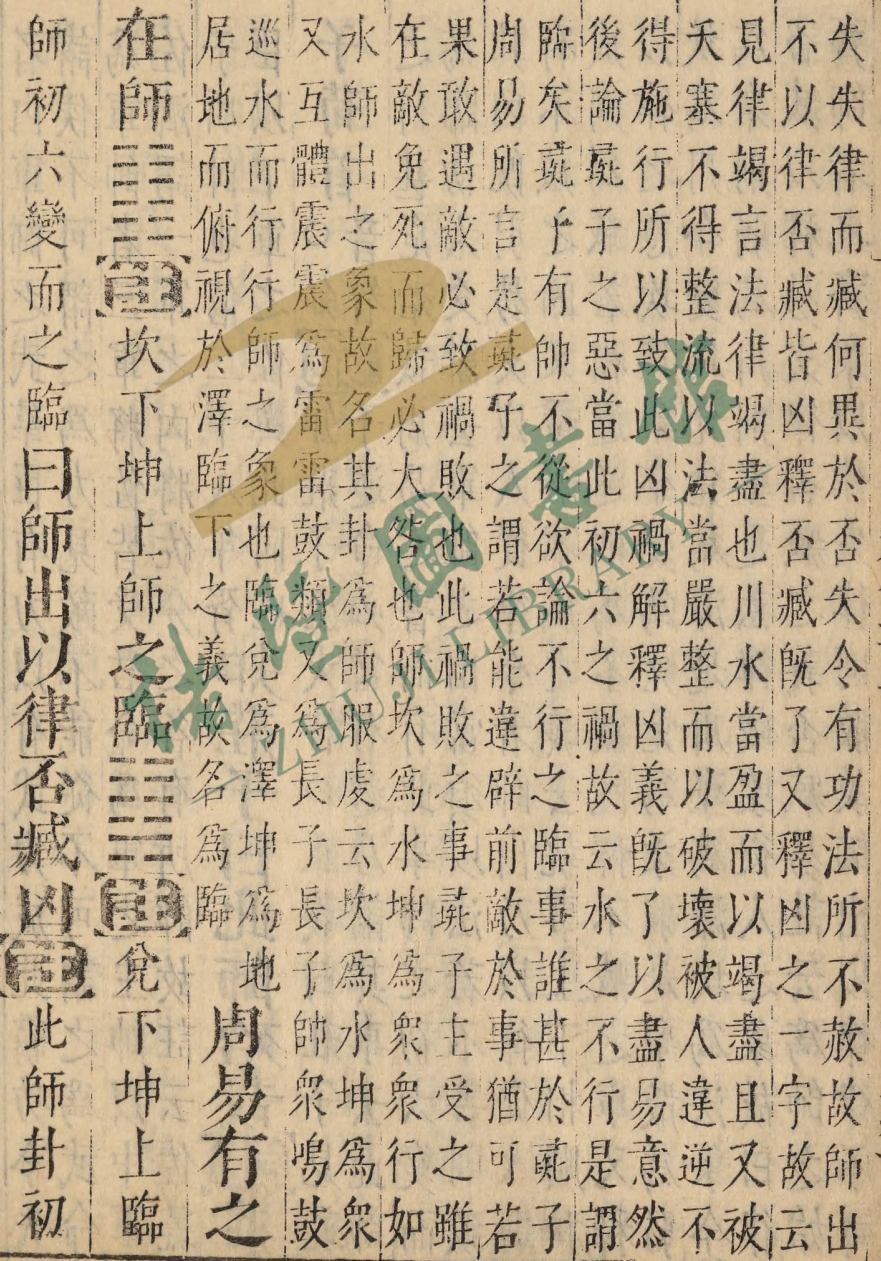 失失律而臧何異於否失令有功法所不赦故師出
不以律否臧皆凶釋否臧旣了又釋凶之一字故云
見律竭言法律竭盡也川水當盈而以竭盡且又被
夭塞不得整流以法當嚴整而以破壞被人違逆不
得施行所以致此凶禍解釋凶義旣了以盡易意然
後論彘子之惡當此初六之禍故云水之不行是謂
臨矣彘子有帥不從欲論不行之臨事誰甚於彘子
周易所言是彘子之謂若能違辟前敵於事猶可若
果敢遇敵必致禍敗也此禍敗之事彘子主受之雖
在敵免死而歸必大咎也師坎爲水坤爲衆衆行如
水師出之象故名其卦爲師服虔云坎爲水坤爲衆
又互體震震爲雷雷鼓類又爲長子長子帥衆鳴鼓
巡水而行行師之象也臨兌爲澤坤爲地
居地而俯視於澤臨下之義故名爲臨
周易有之
在師䷆注坎下坤上師之臨䷒注兌下坤上臨
師初六變而之臨曰師出以律否臧凶注此師卦初
浙江圖書館
ZHEJIANG LIBRARY